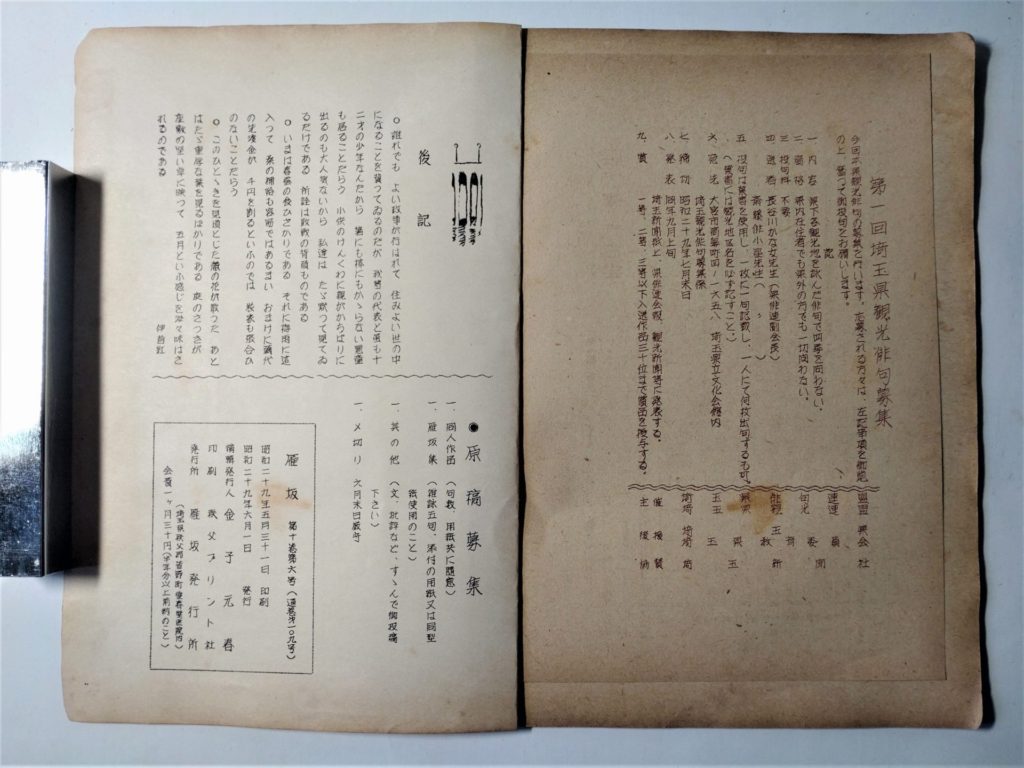 第一回埼玉県観光俳句募集
今回本県観光俳句の募集を行います。応募される方々は、左記事項を御覧
の上、奮って御投句をお願いします。
記
一、内容 県下を観光地を詠んだ俳句で四季を問わない。
二、資格 県内在住者でも県外の方でも一切問わない。
三、投句料 不要
四、選者 長谷川かな女先生(県俳連副会長)
五、投句は葉書を使用し、一枚に一句記載し、一人にて何枚出句するも可。
(葉書には観光地区名を必ず記すこと。)
六、宛先 大宮市高鼻町四ノ一五八 埼玉県立文化会館内
埼玉観光俳句募集係
七、締切 昭和二十九年七月末日
八、発表 同年九月上旬
埼玉新聞紙上、県俳連会報、観光新聞等に発表する。
九、賞 一等、二等、三等以下入選作品三十位まで賞品を授与する。
主催
後援
後記
○ 誰れでも よい政事が行はれて 住みよい世の中
になることを願つてゐるのだが 我者の代表と雖も十
二才の少年なんだから
も居ることだらう 小供のけんくわに親がからばりに
出るのも大人気ないから 私達は たゞ黙つて視てゐ
るだけである 所詮は敗戦の背負ものである
○ いまは春蚕の食ひざかりである それに降雨に逆
入つて 桑の補給も容易ではあるまい おまけに繭代
の先渡金が 千円を割るといふのでは 農家も張合ひ
のないことだらう
はたゞ重厚な葉を見るばかりである 庭のさつきが
座敷の坐い卓に映つて 五月といふ感じを沁々味はさ
れるのである
● 原稿募集
一、同人作品(句数、用紙共に随意)
一、雁坂集(雑詠五句、添付の用紙又は同型
紙使用のこと)
一、其の他(文、批評など、すゝんで御投稿
下さい)
一、〆切り 六月末日厳守
雁坂 第十巻第六号(通巻第一〇九号)
昭和二十九年五月三十一日 印刷
昭和二十九年六月一日 発行
編輯発行人 金子元春
印刷 秩父プリント社
発行所 雁坂発行所
(埼玉県秩父郡皆野町壺春堂医院内)
会費一ヶ月三十円(半年分以上前納のこと)